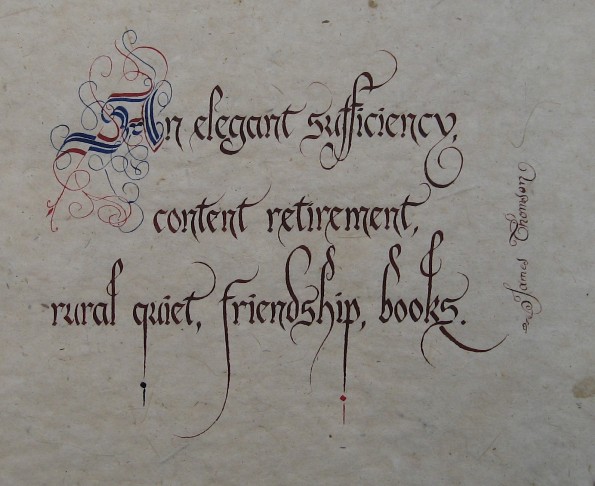 An elegant sufficiency,
content retirement,
rural quiet, friendship, books.
James Thomson